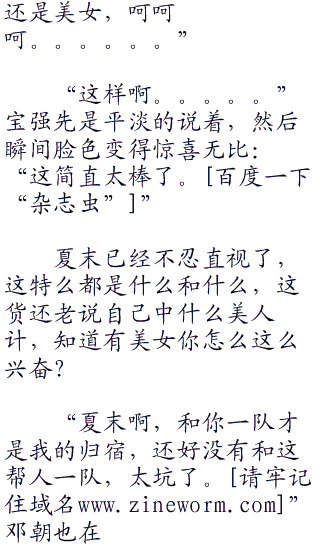 还是美女，呵呵
呵。。。。。。”
“这样啊。。。。。”
宝强先是平淡的说着，然后
瞬间脸色变得惊喜无比：
“这简直太棒了。[百度一下
“杂志虫”]”
夏末已经不忍直视了，
这特么都是什么和什么，这
货还老说自己中什么美人
计，知道有美女你怎么这么
兴奋？
“夏末啊，和你一队才
是我的归宿，还好没有和这
帮人一队，太坑了。[请牢记
住域名www.zineworm.com]”
邓朝也在